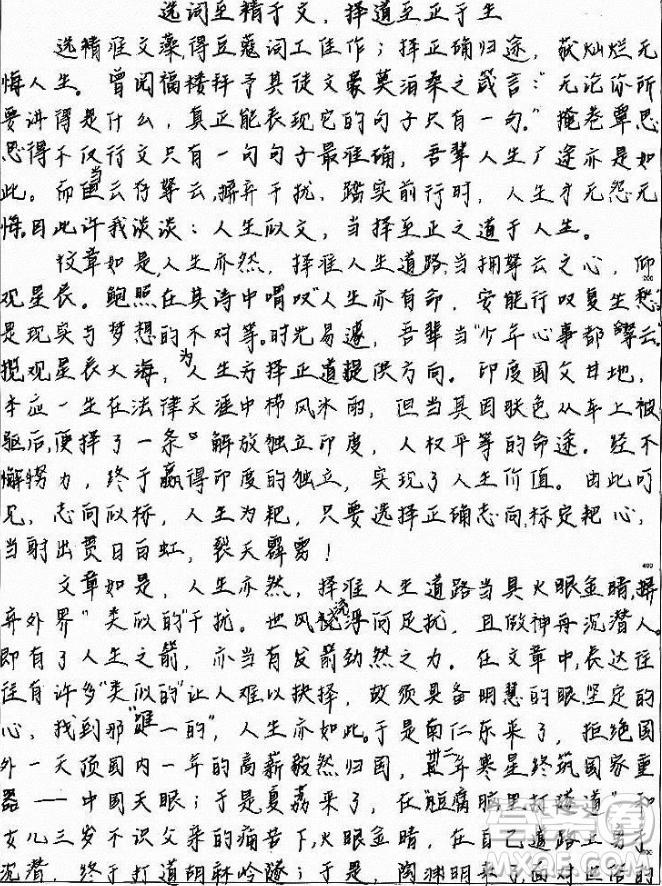 选词至精于文，择道至正于生
选精准文藻，得豆蔻词工佳作；择正确归途，获灿烂无
悔人生。曾闻福楼拜予其徒文豪莫泊桑之箴言："无论你所
要讲得是什么，真正能表现它的句子只有一句。"掩卷覃思
思得不仅行文只有一句句子最准确，吾辈人生广途亦是如
此。而当云存拏云，摒弃干扰，踏实前行时，人生才无怨无
悔。因此许我淡淡：人生似文，当择至正之道于人生。
文章如是，人生亦然，择准人生道路，当拥拏云之心，仰
观星辰。鲍照在其诗中喟叹"人生亦有命，安能行叹复坐愁"
是现实与梦想的不对等。时光易逝，吾辈当"少年心事都拏云"
揽观星辰大海，为人生方择正道提供方向。印度国父甘地，
本应一生在法律天涯中栉风沐雨，但当其因肤色从车上被
驱后，便择了一条"解放独立印度，人权平等的命途。经不
懈努力，终于赢得印度的独立，实现了人生价值。由此可
见，志向似标，人生为靶，只要选择正确志向，标定靶心，
当射出贯日白虹，裂天霹雳！
400
文章如是，人生亦然，择准人生道路当具火眼金睛，摒
弃外界"类似的"干扰。世风流浮何足扰，且做神再沉潜人。
即有了人生之箭，亦当有发箭劲然之力。在文章中，表达往
往有许多"类似的"让人难以抉择，故须具备明慧的眼，坚定的
心，找到那"唯一的"，人生亦如此。于是南仁东来了，拒绝国
外一天顶国内一年的高薪毅然归国，廿二年寒星终筑国家重
器——中国天眼；于是夏荔来了，在"豆腐脑里打隧道"和
女儿三岁不识父亲的痛苦下，火眼金睛，在自己道路上勇于
沉潜，终于打通胡麻岭隧；于是，陶渊明来了面对世俗的